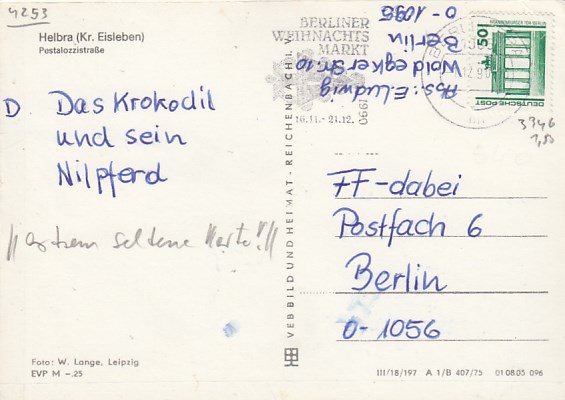 4253
Helbra (Kr. Eisleben)
Pestalozzistraße
D. Das Krokodil
und sein
Nilpferd
!! extrem seltene Karte !!!
Foto: W. Lange, Leipzig
EVP M –.25
VEB BILD UND HEIMAT · REICHENBACH I. V.
BERLINER
WEIHNACHTS
MARKT
1990
16.11.- 21.12.
Abs: E. Ludwig
Woldegker Str. 10
Berlin
O-1095
50
DEUTSCHE POST
3346
1,50
FF-dabei
Postfach 6
Berlin
O-1056
III/18/197 A 1/B 407/75 01 08 05 096